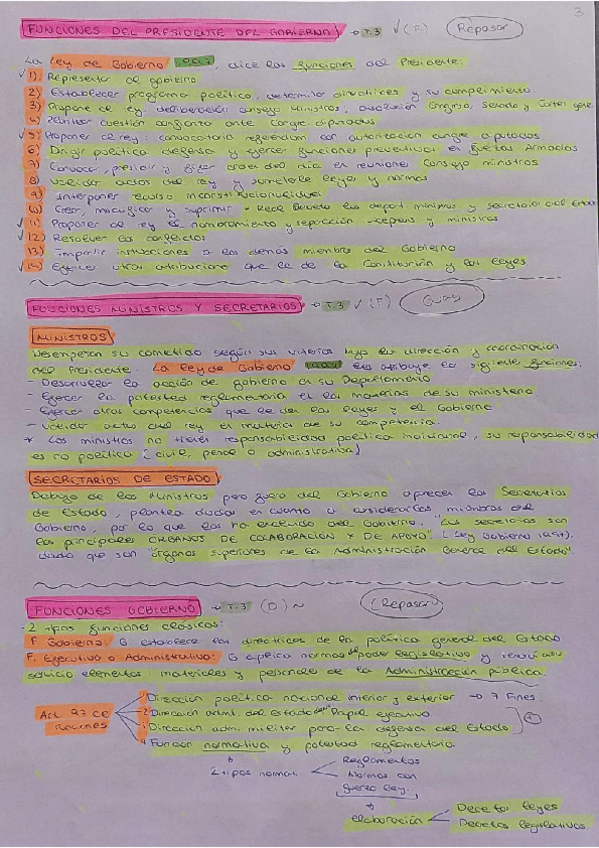 3
FUNCIONES DEL PRESIDENTE DEL GOBIERNO → T.3 √ (R) Repasar
La Ley de Gobierno, dice las funciones del Presidente:
√ 1) Representar al gobierno
2) Establecer programa político, determinar directrices y su cumplimiento
3) Propone al rey, deliberación consejo Ministros, disolución Congreso, Senado y Cortes gene.
4) Plantear cuestión confianza ante Congre diputados
√ 5) Proponer al rey: convocatoria referendum con autorización congre diputados
6) Dirigir política defensa y ejercer funciones Fuerzas Armadas
7) Convocar, presidir y fijar orden del día en reuniones Consejo ministros
8) Validar actos del rey y someterle leyes y normas
9) Interponer recurso inconstitucionalidad
10) Crear, modificar y suprimir Real Decreto los depart minimos y secretarios del estado
√ 11) Proponer al rey el nombramiento y separación vicepres y ministros
√ 12) Resolver los conflictos
13) Impartir instrucciones a los demás miembros del Gobierno
√ 14) Ejercer otras atribuciones que le de la Constitución y las leyes
FUNCIONES MINISTROS Y SECRETARIOS → T.3 √ (T)
MINISTROS
Desempeñan su cometido según sus criterios bajo la dirección y coordinación
del Presidente. La ley de Gobierno les atribuye la siguiente funciones:
- Desarrollar la acción de gobierno en su Departamento
- Ejercer la potestad reglamentaria en las materias de su ministerio
- Ejercer otras competencias que le den las leyes y el Gobierno
- Validar actos del rey en materia de su competencia.
* Los ministros no tienen responsabilidad política individual, su responsabilidad
es no política (civil, penal o administrativa)
SECRETARIOS DE ESTADO
Debajo de los Ministros pero fuera del Gobierno aparecen los Secretarios
de Estado, plantea dudas en cuanto a considerarlos miembros del
Gobierno, por lo que los ha excluido del Gobierno. "Los secretarios son
los principales ORGANOS DE COLABORACIÓN Y DE APOYO" (Ley Gobierno 1997),
dado que son "Órganos superiores de la Administración General del Estado".
FUNCIONES GOBIERNO → T.3 (D) ~ (Repasar)
- 2 tipos funciones clásicas:
F. Gobierno: G establece las directrices de la política general del Estado
F. Ejecutivo o Administrativo: G aplica normas poder legislativo y
servicio elementos materiales y personales de la Administración pública.
Art. 97 CE funciones
1 Dirección política nacional interior y exterior → 7 Fines
2 Dirección admt. del Estado Papel ejecutivo
3 Dirección adm. militar para la defensa del Estado
4 Función normativa y potestad reglamentaria
2 tipos normas
Reglamentos
Normas con fuerza ley.
elaboración
Decretos leyes
Decretos legislativos.